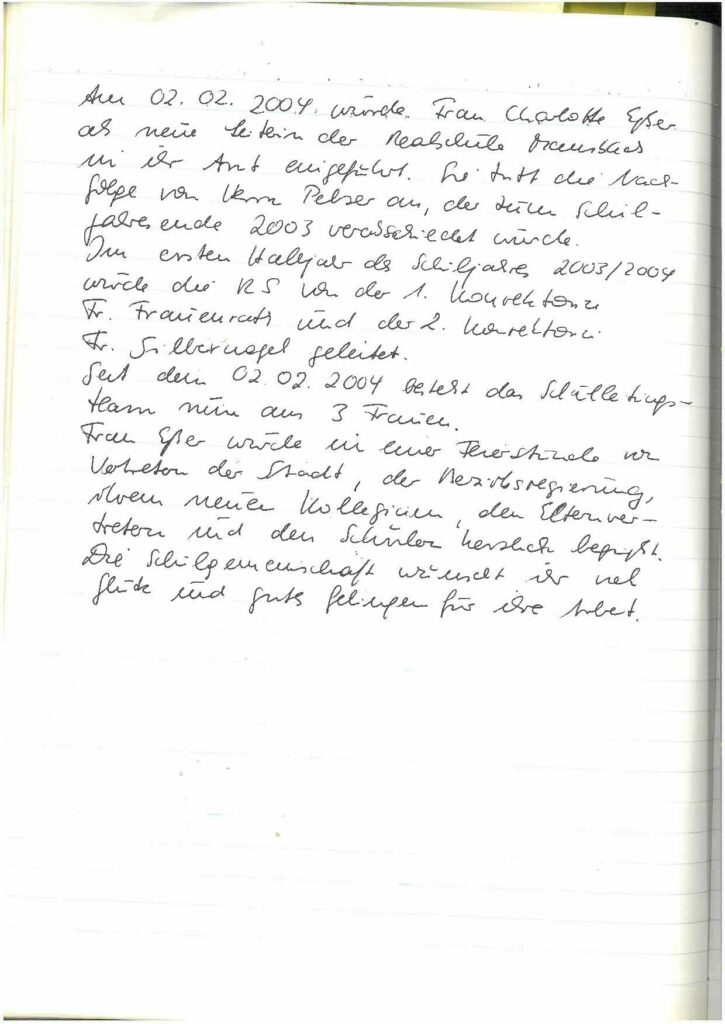 Am 02.02.2004 wurde Frau Charlotte Eßer
als neue Leiterin der Realschule
in ihr Amt eingeführt. Sie tritt die Nach-
folge von Herrn Pelzer an, der zum Schul-
jahresende 2003 verabschiedet wurde.
Im ersten Halbjahr des Schuljahres 2003/2004
wurde die RS von der 1. Konrektorin
Fr. Frauenrath und der 2. Konrektorin
Fr. Silbernagel geleitet.
Seit dem 02.02.2004 besteht das Schulleitungs-
team nun aus 3 Frauen.
Frau Eßer wurde in einer Feierstunde von
Vertretern der Stadt, der Bezirksregierung,
ihrem neuen Kollegium, den Elternver-
tretern und den Schülern herzlich begrüßt.
Die Schulgemeinschaft wünscht ihr viel
Glück und gutes Gelingen für ihre Arbeit.